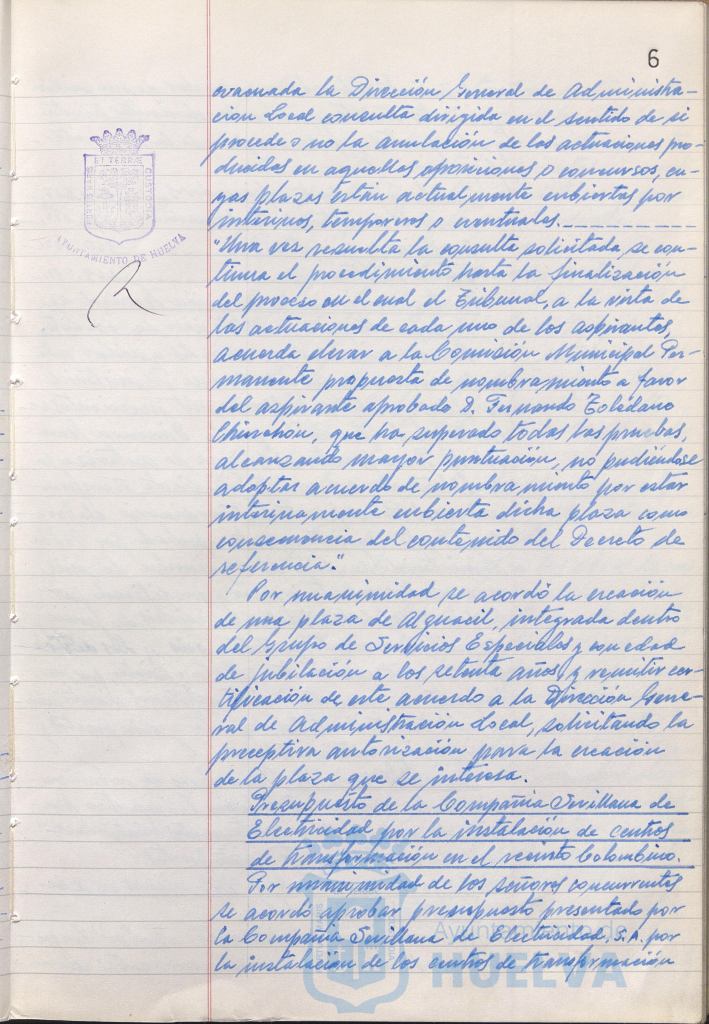 6
evacuada la Dirección General de Administra-
ción Local consulta dirigida en el sentido de si
procede o no la anulación de las actuaciones pro-
ducidas en aquellas oposiciones o concursos, cu-
yas plazas están actualmente cubiertas por
interinos, temporeros o eventuales.
"Una vez resuelta la consulta solicitada se con-
tinua el procedimiento hasta la finalización
del proceso en el cual el Tribunal, a la vista de
las actuaciones de cada uno de los aspirantes,
acuerda elevar a la Comisión Municipal Per-
manente propuesta de nombramiento a favor
del aspirante aprobado D. Fernando Toledano
Chinchón, que ha superado todas las pruebas,
alcanzando mayor puntuación, no pudiéndose
adoptar acuerdo de nombramiento por estar
interinamente cubierta dicha plaza como
consecuencia del contenido del Decreto de
referencia".
Por unanimidad se acordó la creación
de una plaza de Alguacil, integrada dentro
del Grupo de Servicios Especiales y con edad
de jubilación a los setenta años, y remitir cer-
tificación de este acuerdo a la Dirección Gene-
ral de Administración Local, solicitando la
preceptiva autorización para la creación
de la plaza que se interesa.
Presupuesto de la Compañia Sevillana de
Electricidad por la instalación de centros
de transformación en el recinto Colombino.
Por unanimidad de los señores concurrentes
se acordó aprobar presupuesto presentado por
la Compañia Sevillana de Electricidad, S.A. por
la instalación de los centros de transformación
AYUNTAMIENTO DE HUELVA
ET TERRÆ
CUSTODIA
Ayuntamiento de
HUELVA